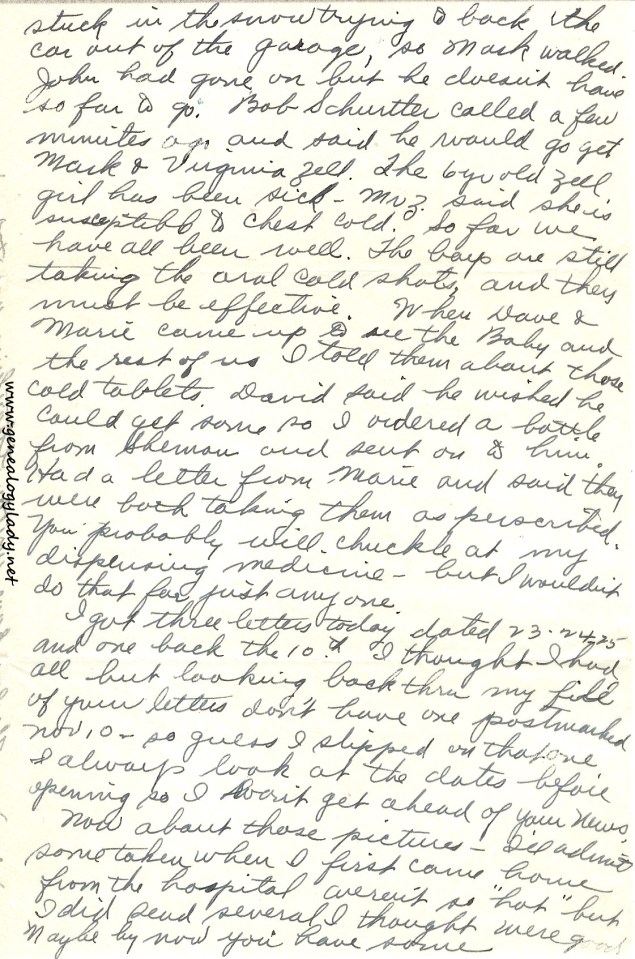 stuck in the snow trying to back the
car out of the garage, so Mark walked.
John had gone on but he doesn't have
so far to go. Bob Schurtter called a few
minutes ago and said he would go get
Mark & Virginia Zell. The 6 yr old Zell
girl has been sick - Mrs Z. said she is
susceptibb to chest cold. So far we
have all been well. The boys are still
taking the oral cold shots, and they
must be effective. When Dave &
Marie came up to see the Baby and
the rest of us I told them about those
cold tablets. David said he wished he
could get some so I ordered a bottle
from Sherman and sent on to him.
Had a letter from Marie and said they
were both taking them as perscribed.
You probably will chuckle at my
dispensing medicine - but I wouldn't
do that for just anyone.
I got three letters today dated 23-24-25
and one back the 10th. I thought I had
all but looking back thru my file
of your letters don't have one postmarked
Nov 10 - so guess I slipped on that one
I always look at the dates before
opening so I won't get ahead of your news.
Now about those pictures - I'll admit
some taken when I first came home
from the hospital weren't so "hot" but
I did send several I thought were good
Maybe by now you have some
www.genealogylady.net